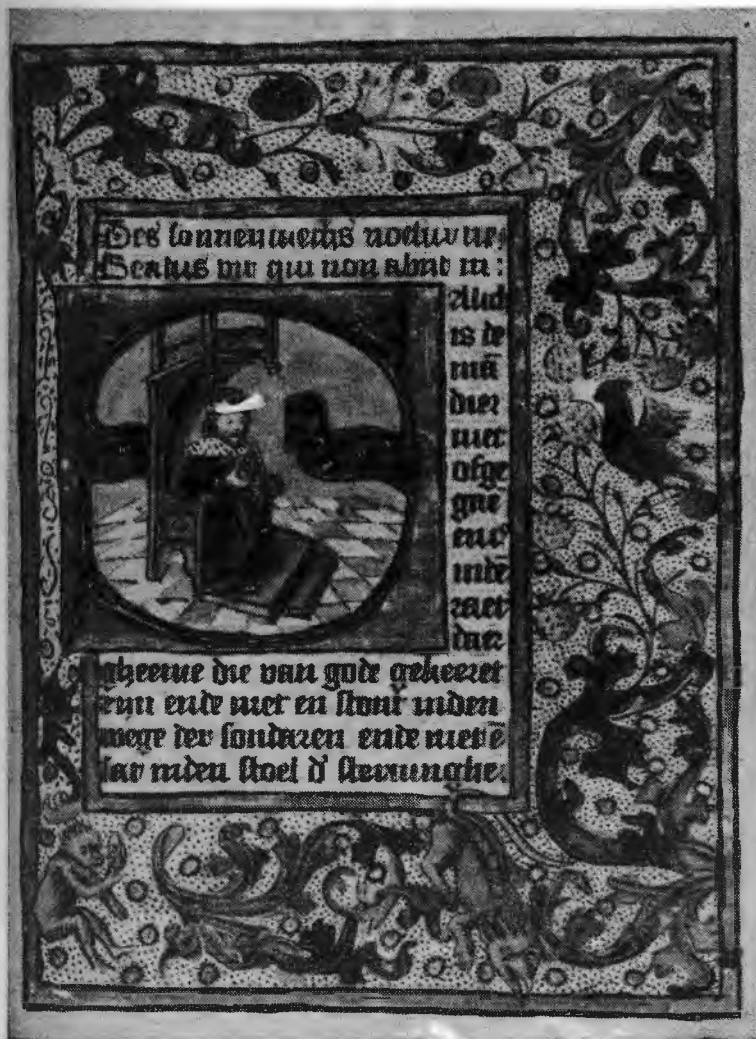 Des nocturne
Beatus vir qui non abiit in:
Alich
is de
mā
dier
niet
ofge
gae
en is
inde
raet
dier
gheenre die van gode gekeeret
sijn ende niet en stont inden
wege der sondaren ende niet ē
sat inden stoel d' steruinghe: